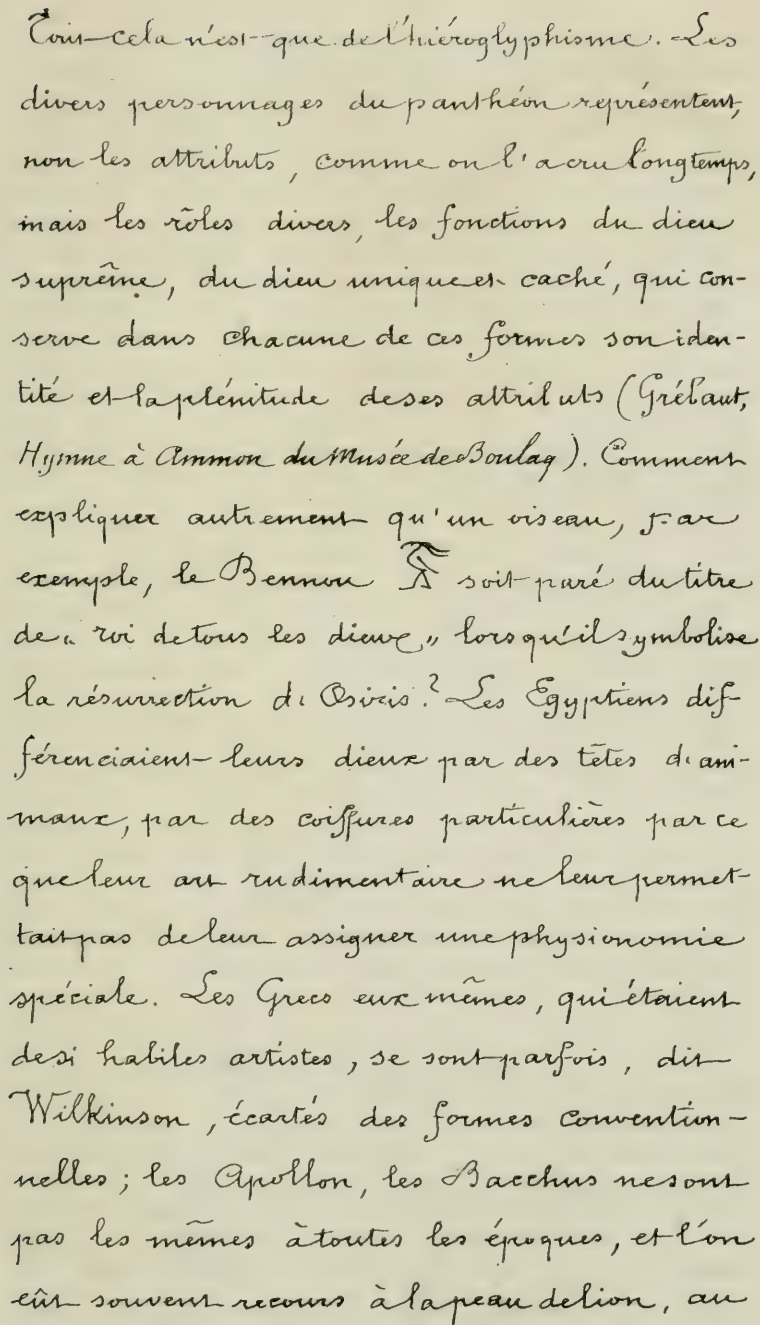 Tout cela n'est que de l'hiéroglyphisme. Les
divers personnages du panthéon représentent,
non les attributs, comme on l'a cru longtemps,
mais les rôles divers, les fonctions du dieu
suprême, du dieu unique et caché, qui con-
serve dans chacune de ces formes son iden-
tité et la plénitude de ses attributs (Grébaut,
Hymne à Ammon du Musée de Boulaq). Comment
expliquer autrement qu'un oiseau, par
exemple, le Bennou soit paré du titre
de „ roi de tous les dieux „ lorsqu'il symbolise
la résurrection d'Osiris? Les Egyptiens dif-
férenciaient leurs dieux par des têtes d'ani-
maux, par des coiffures particulières parce
que leur art rudimentaire ne leur permet-
tait pas de leur assigner une physionomie
spéciale. Les Grecs eux mêmes, qui étaient
de si habiles artistes, se sont parfois, dit
Wilkinson, écartés des formes convention-
nelles; les Apollon, les Bacchus ne sont
pas les mêmes à toutes les époques, et l'on
eût souvent recours à la peau de lion, au